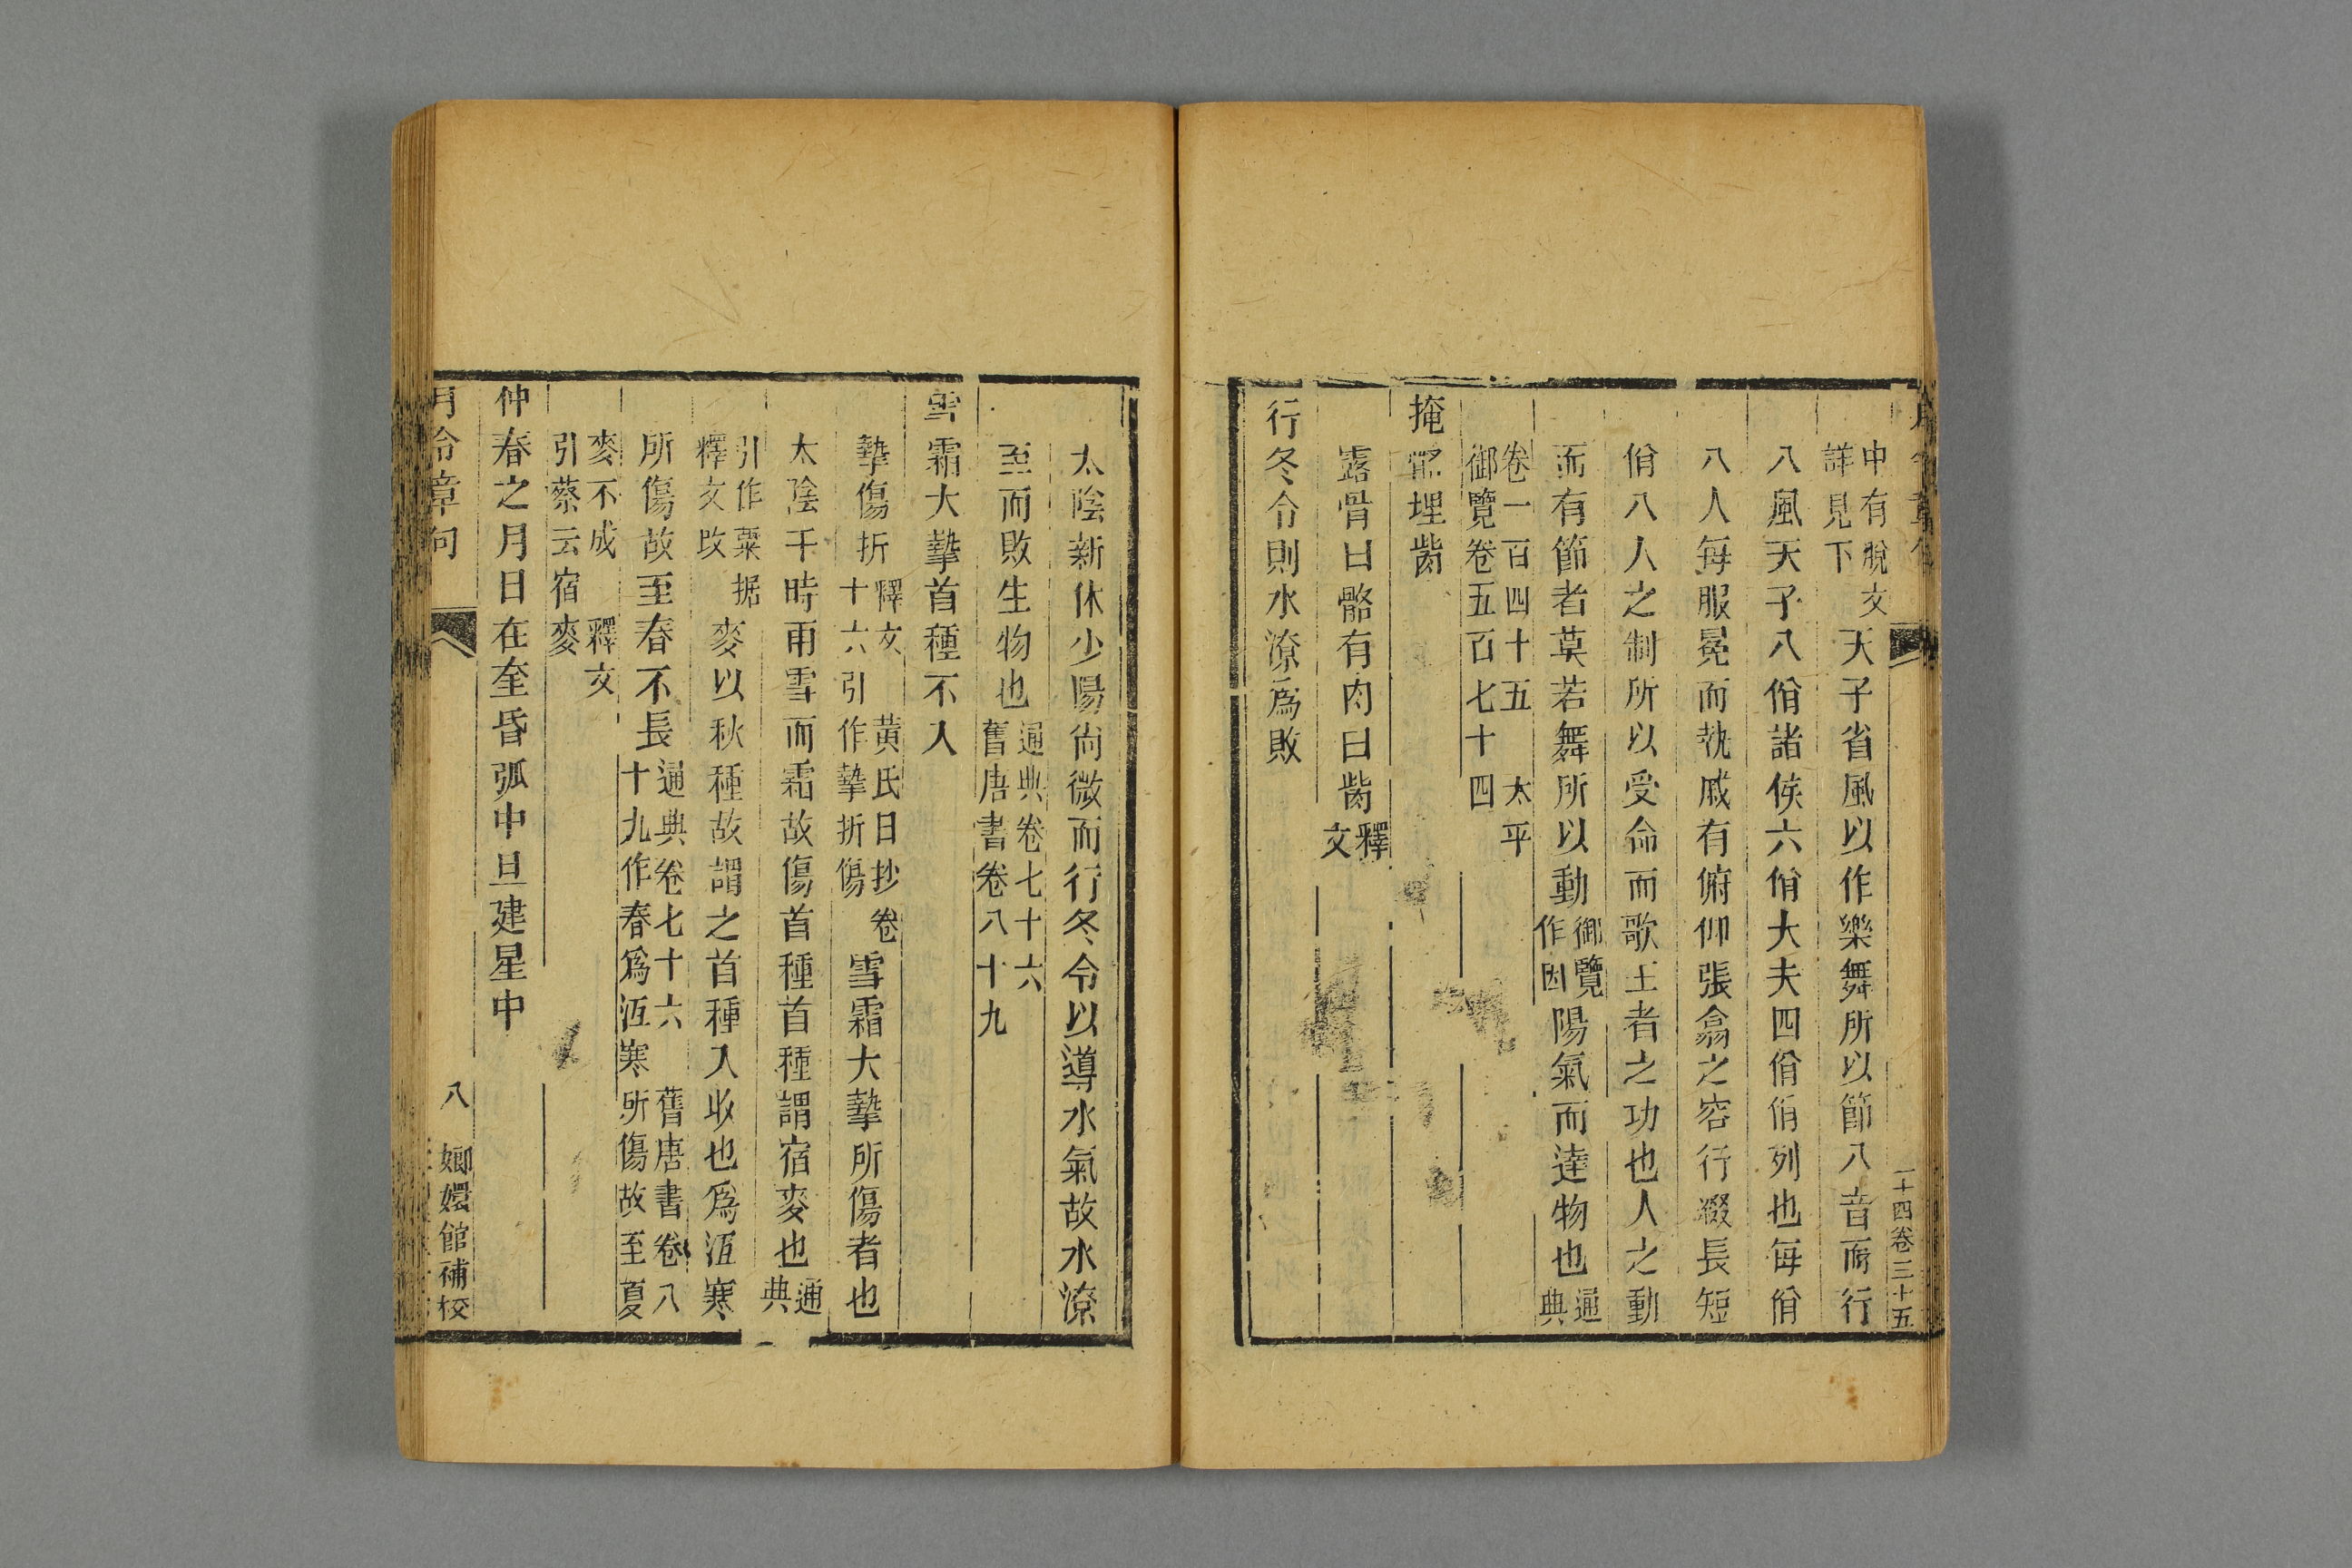 中有脫文
詳見下
天子省風以作樂舞所以節八音而行
八風天子八佾諸侯六佾大夫四佾佾列也每佾
八人每服冕而執戚有俯仰張翕之容行綴長短
佾八人之制所以受命而歌王者之功也人之動
而有節者莫若舞所以動
御覽
作因
陽氣而達物也
通
典
卷一百四十五 太平
御覽卷五百七十四
掩骼埋胔
露骨曰骼有肉曰胔
釋
文
行冬令則水潦爲敗
一十四卷三十五
太陰新休少陽尙微而行冬令以導水氣故水潦
至而敗生物也
通典卷七十六
舊唐書卷八十九
雪霜大摯首種不入
摯傷折
釋文 黃氏日抄卷
十六引作摯折傷
雪霜大摯所傷者也
太陰干時雨雪而霜故傷首種首種謂宿麥也
通
典
引作粟据
釋文改
麥以秋種故謂之首種入收也爲沍寒
所傷故至春不長
通典卷七十六 舊唐書卷八
十九作春爲沍寒所傷故至夏
麥不成 釋文
引蔡云宿麥
仲春之月日在奎昏弧中旦建星中
月令章句
八
嫏嬛館補校